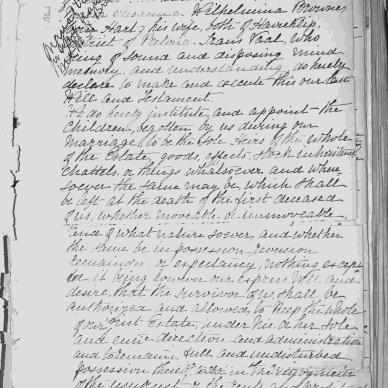 Wilhelmina Browne
born Hart, his wife, both of
District of Pretoria, Trans Vaal, Who
being of sound and disposing mind
memory, and understanding, do hereby
declare to make and execute this our last
Will and Testament.
We do hereby institute and appoint the
Children, begotten by us during our
Marriage, to be the Sole Heirs of the Whole
of the Estate, goods, effects, Stock, inheritance
Chattels, or things whatsoever and where
soever the same may be, which shall
be left at the death of the first deceased
of us, whether moveable or immoveable,
and of what nature soever, and whether
the same be in possession, reversion
remainder or expectancy, nothing except
ed it being however our express Will and
desire, that the survivor of us shall be
authorized and allowed to keep the whole
of our Joint Estate, under his, or her sole
and direction and administration
and to remain in full and undisturbed
possession thereof, and in the enjoyment
of the usufruct